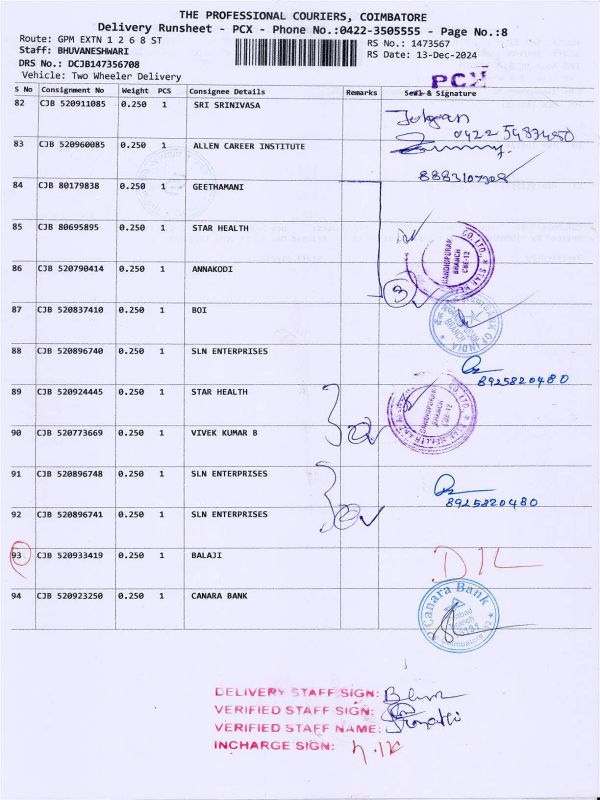 THE PROFESSIONAL COURIERS, COIMBATORE
Delivery Runsheet - PCX - Phone No.:0422-3505555 - Page No.:8
Route: GPM EXTN 1 2 6 8 ST
RS No.: 1473567
Staff: BHUVANESHWARI
RS Date: 13-Dec-2024
DRS No.: DCJB147356708
Vehicle: Two Wheeler Delivery
PCX
S No Consignment No Weight PCS Consignee Details Remarks Seal & Signature
82 CJB 520911085 0.250 1 SRI SRINIVASA
83 CJB 520960085 0.250 1 ALLEN CAREER INSTITUTE
84 CJB 80179838 0.250 1 GEETHAMANI
85 CJB 80695895 0.250 1 STAR HEALTH
GANDHIPURAM BRANCH CBE-12
86 CJB 520790414 0.250 1 ANNAKODI
3
87 CJB 520837410 0.250 1 BOI
BANK OF INDIA
88 CJB 520896740 0.250 1 SLN ENTERPRISES
8925820480
89 CJB 520924445 0.250 1 STAR HEALTH
GANDHIPURAM BRANCH CBE-12
90 CJB 520773669 0.250 1 VIVEK KUMAR B
91 CJB 520896748 0.250 1 SLN ENTERPRISES
8925820480
92 CJB 520896741 0.250 1 SLN ENTERPRISES
93 CJB 520933419 0.250 1 BALAJI
DIL
94 CJB 520923250 0.250 1 CANARA BANK
Canara Bank
Coimbatore
DELIVERY STAFF SIGN:
VERIFIED STAFF SIGN:
VERIFIED STAFF NAME:
INCHARGE SIGN: